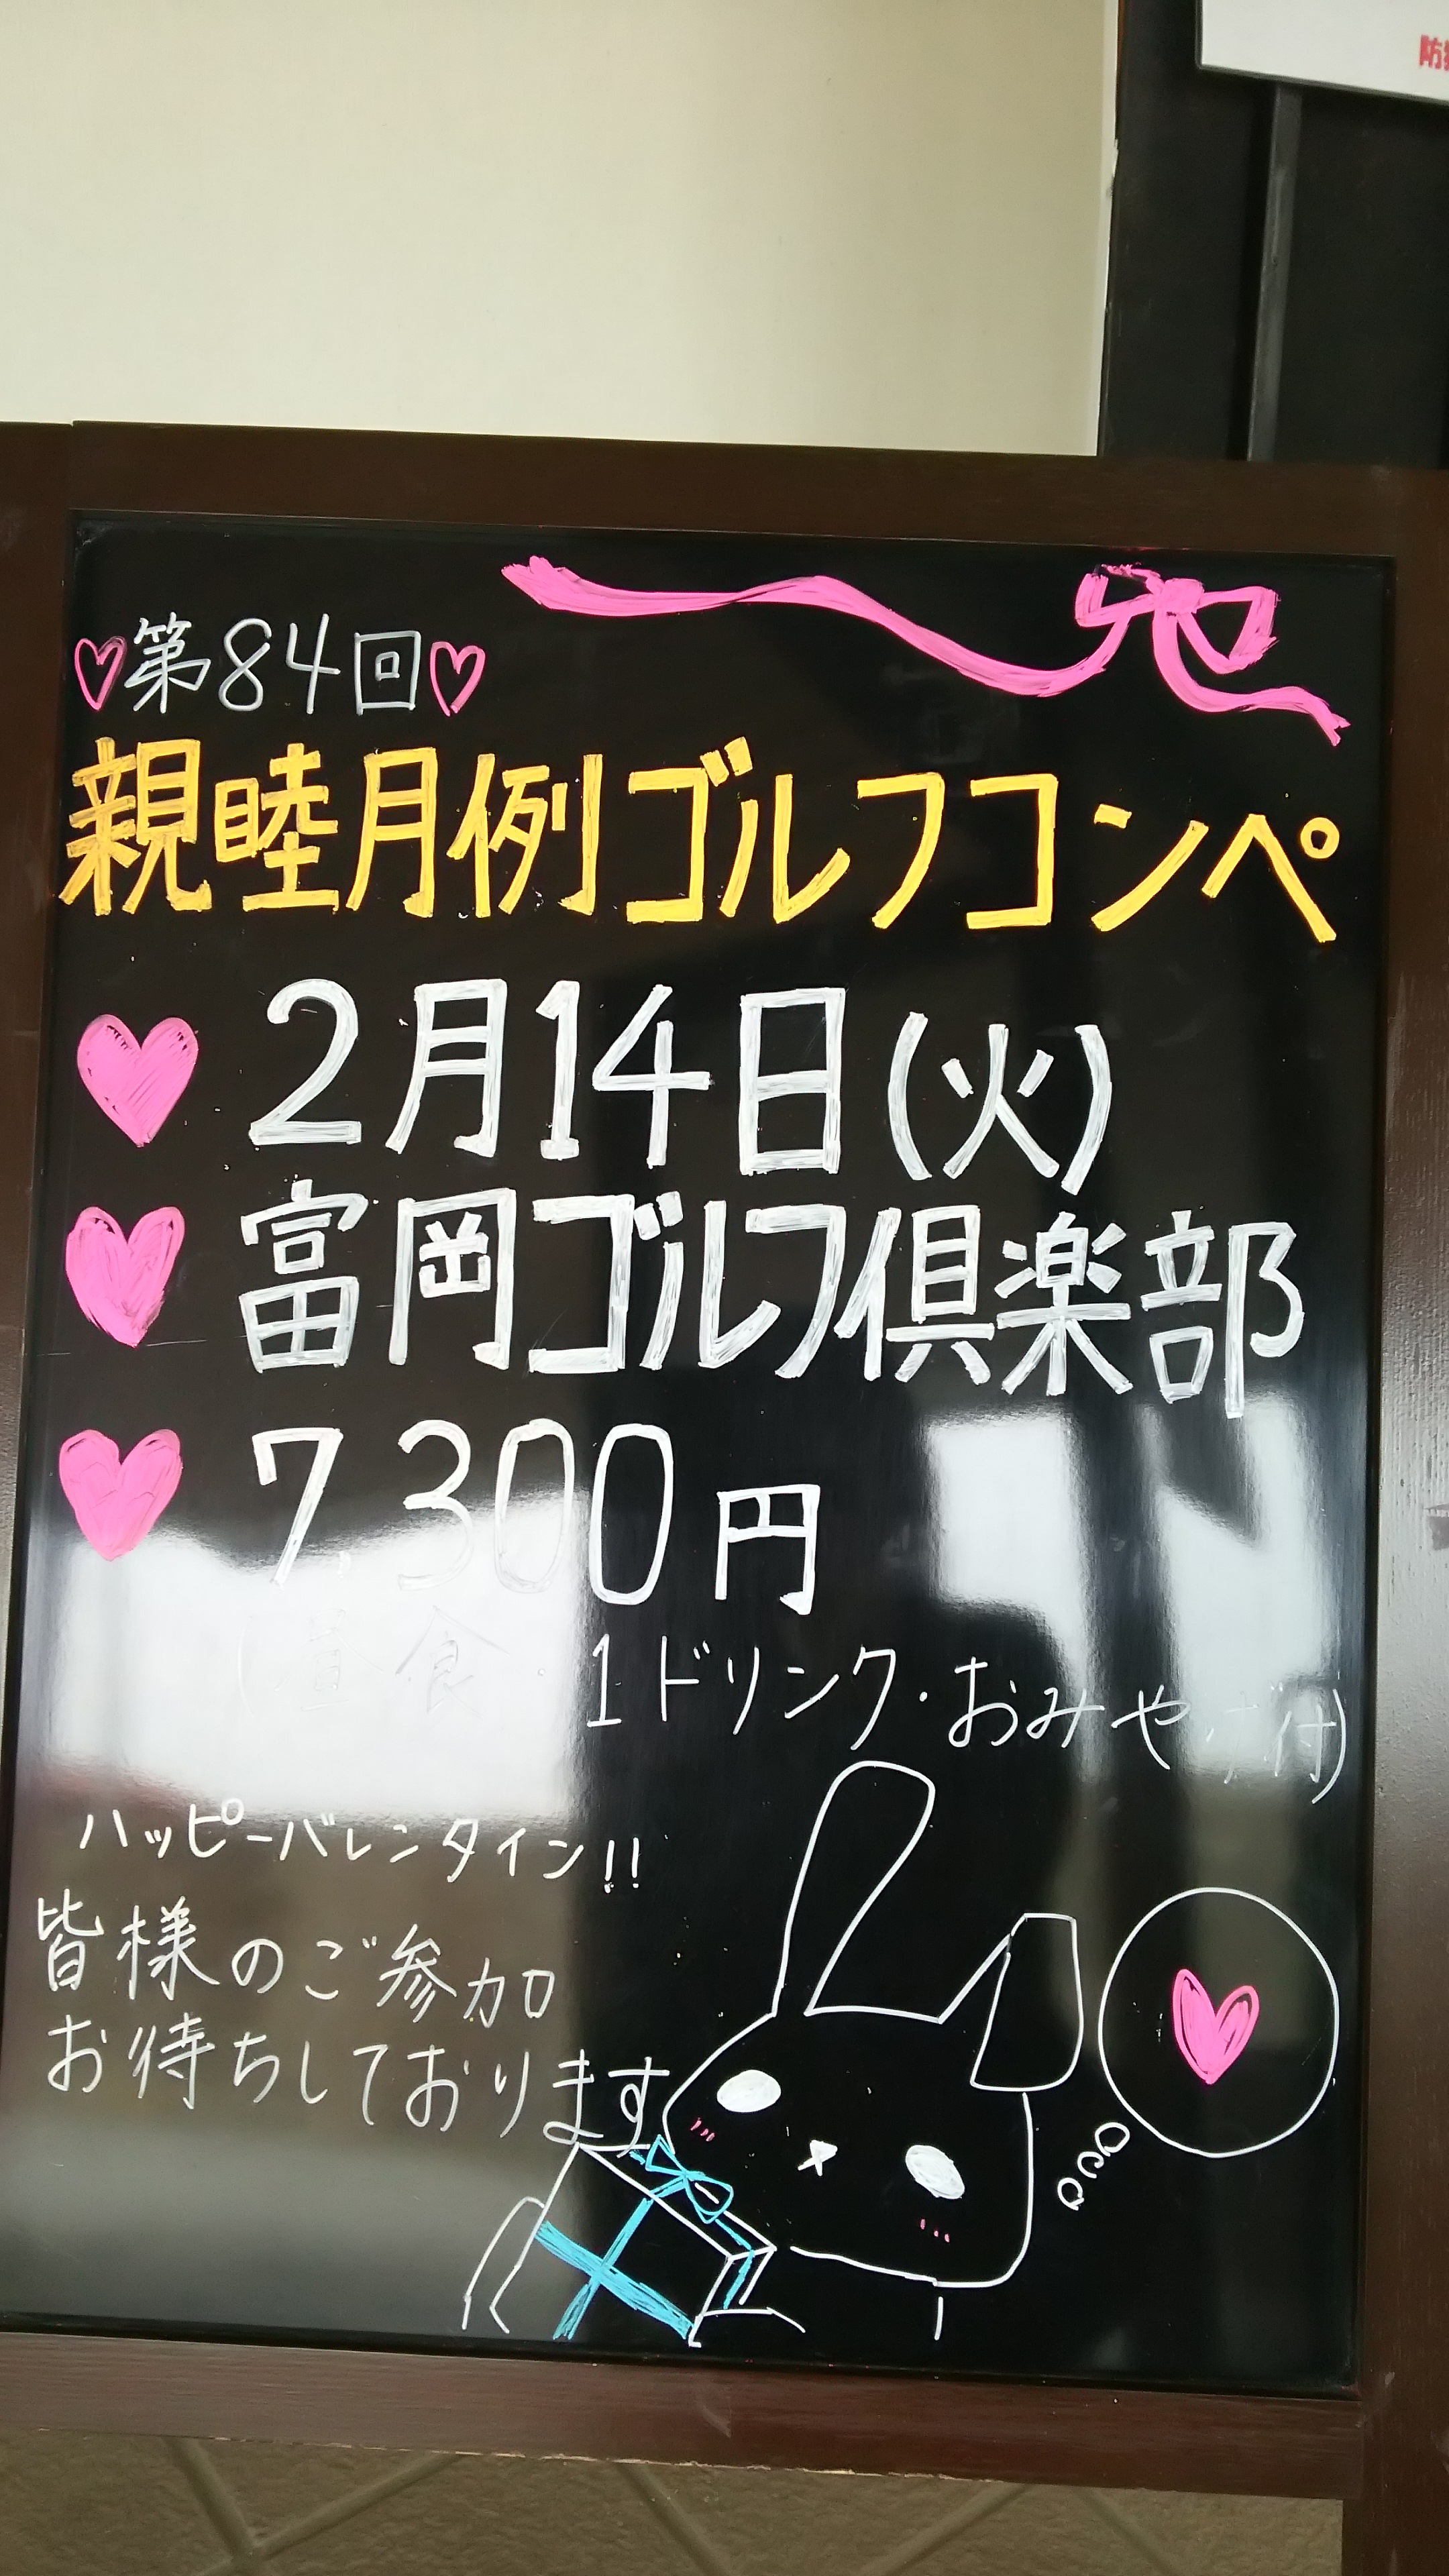 ♡第84回♡
親睦月例ゴルフコンペ
2月14日(火)
富岡ゴルフ倶楽部
7,300円
(昼食・1ドリンク・おみやげ付)
ハッピーバレンタイン!!
皆様のご参加
お待ちしております